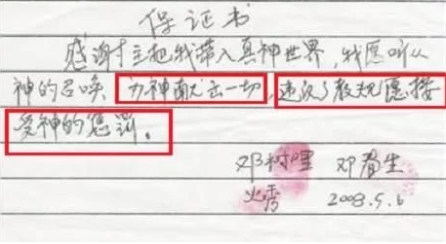 保证书
感谢主把我带入真神世界,我愿听从
神的召唤,为神献出一切,违反了教规愿接
受神的惩罚。
邓树 邓春生
2008.5.6